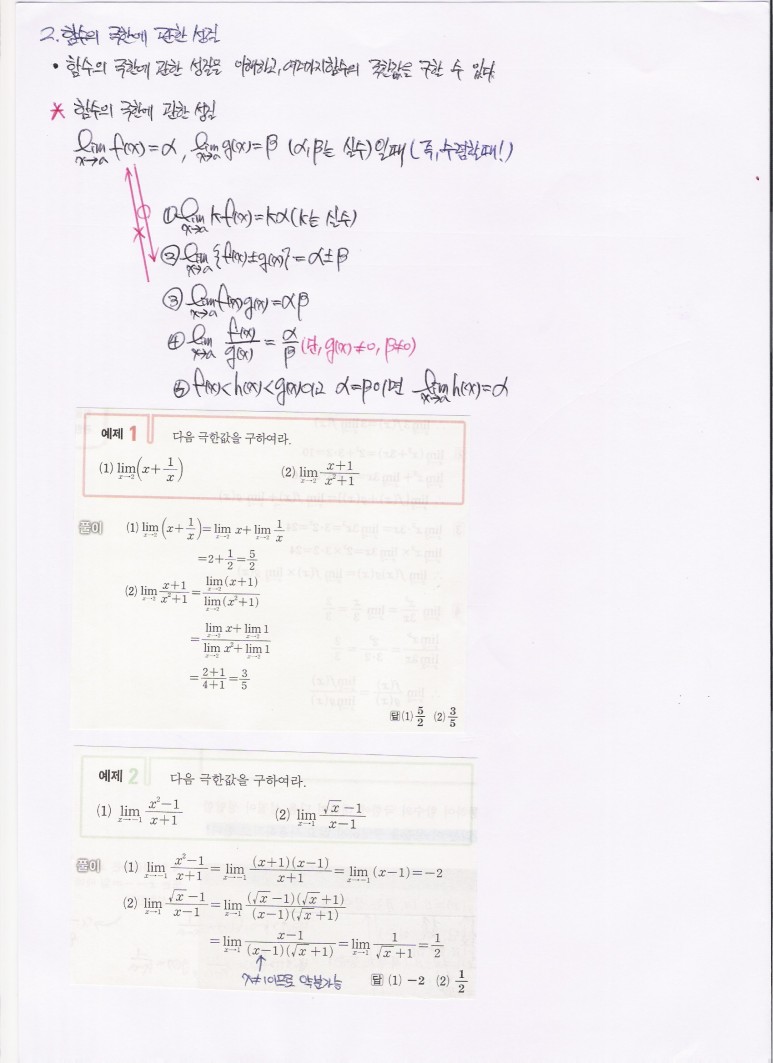 2. 함수의 극한에 관한 성질
• 함수의 극한에 관한 성질을 이해하고, 여러가지함수의 극한값을 구할 수 있다.
* 함수의 극한에 관한 성질
lim x→a f(x)=α, lim x→a g(x)=β (α,β는 실수)일때 (즉, 수렴할때!)
① lim x→a kf(x)=kα(k는 실수)
② lim x→a {f(x)±g(x)}=α±β
③ lim x→a f(x)g(x)=αβ
④ lim x→a f(x)/g(x) = α/β (단, g(x)≠0, β≠0)
⑤ f(x)<h(x)<g(x)이고 α=β이면 lim x→a h(x)=α
예제 1 다음 극한값을 구하여라.
(1) lim x→2 (x+1/x) (2) lim x→2 (x+1)/(x²+1)
풀이 (1) lim x→2 (x+1/x)=lim x→2 x+lim x→2 1/x
=2+1/2=5/2
(2) lim x→2 (x+1)/(x²+1)=lim x→2 (x+1)/lim x→2 (x²+1)
=(lim x→2 x+lim x→2 1)/(lim x→2 x²+lim x→2 1)
=(2+1)/(4+1)=3/5
답 (1) 5/2 (2) 3/5
예제 2 다음 극한값을 구하여라.
(1) lim x→-1 (x²-1)/(x+1) (2) lim x→1 (√x-1)/(x-1)
풀이 (1) lim x→-1 (x²-1)/(x+1)=lim x→-1 (x+1)(x-1)/(x+1)=lim x→-1 (x-1)=-2
(2) lim x→1 (√x-1)/(x-1)=lim x→1 (√x-1)(√x+1)/(x-1)(√x+1)
=lim x→1 (x-1)/(x-1)(√x+1)=lim x→1 1/(√x+1)=1/2
x≠1이므로 약분가능
답 (1) -2 (2) 1/2